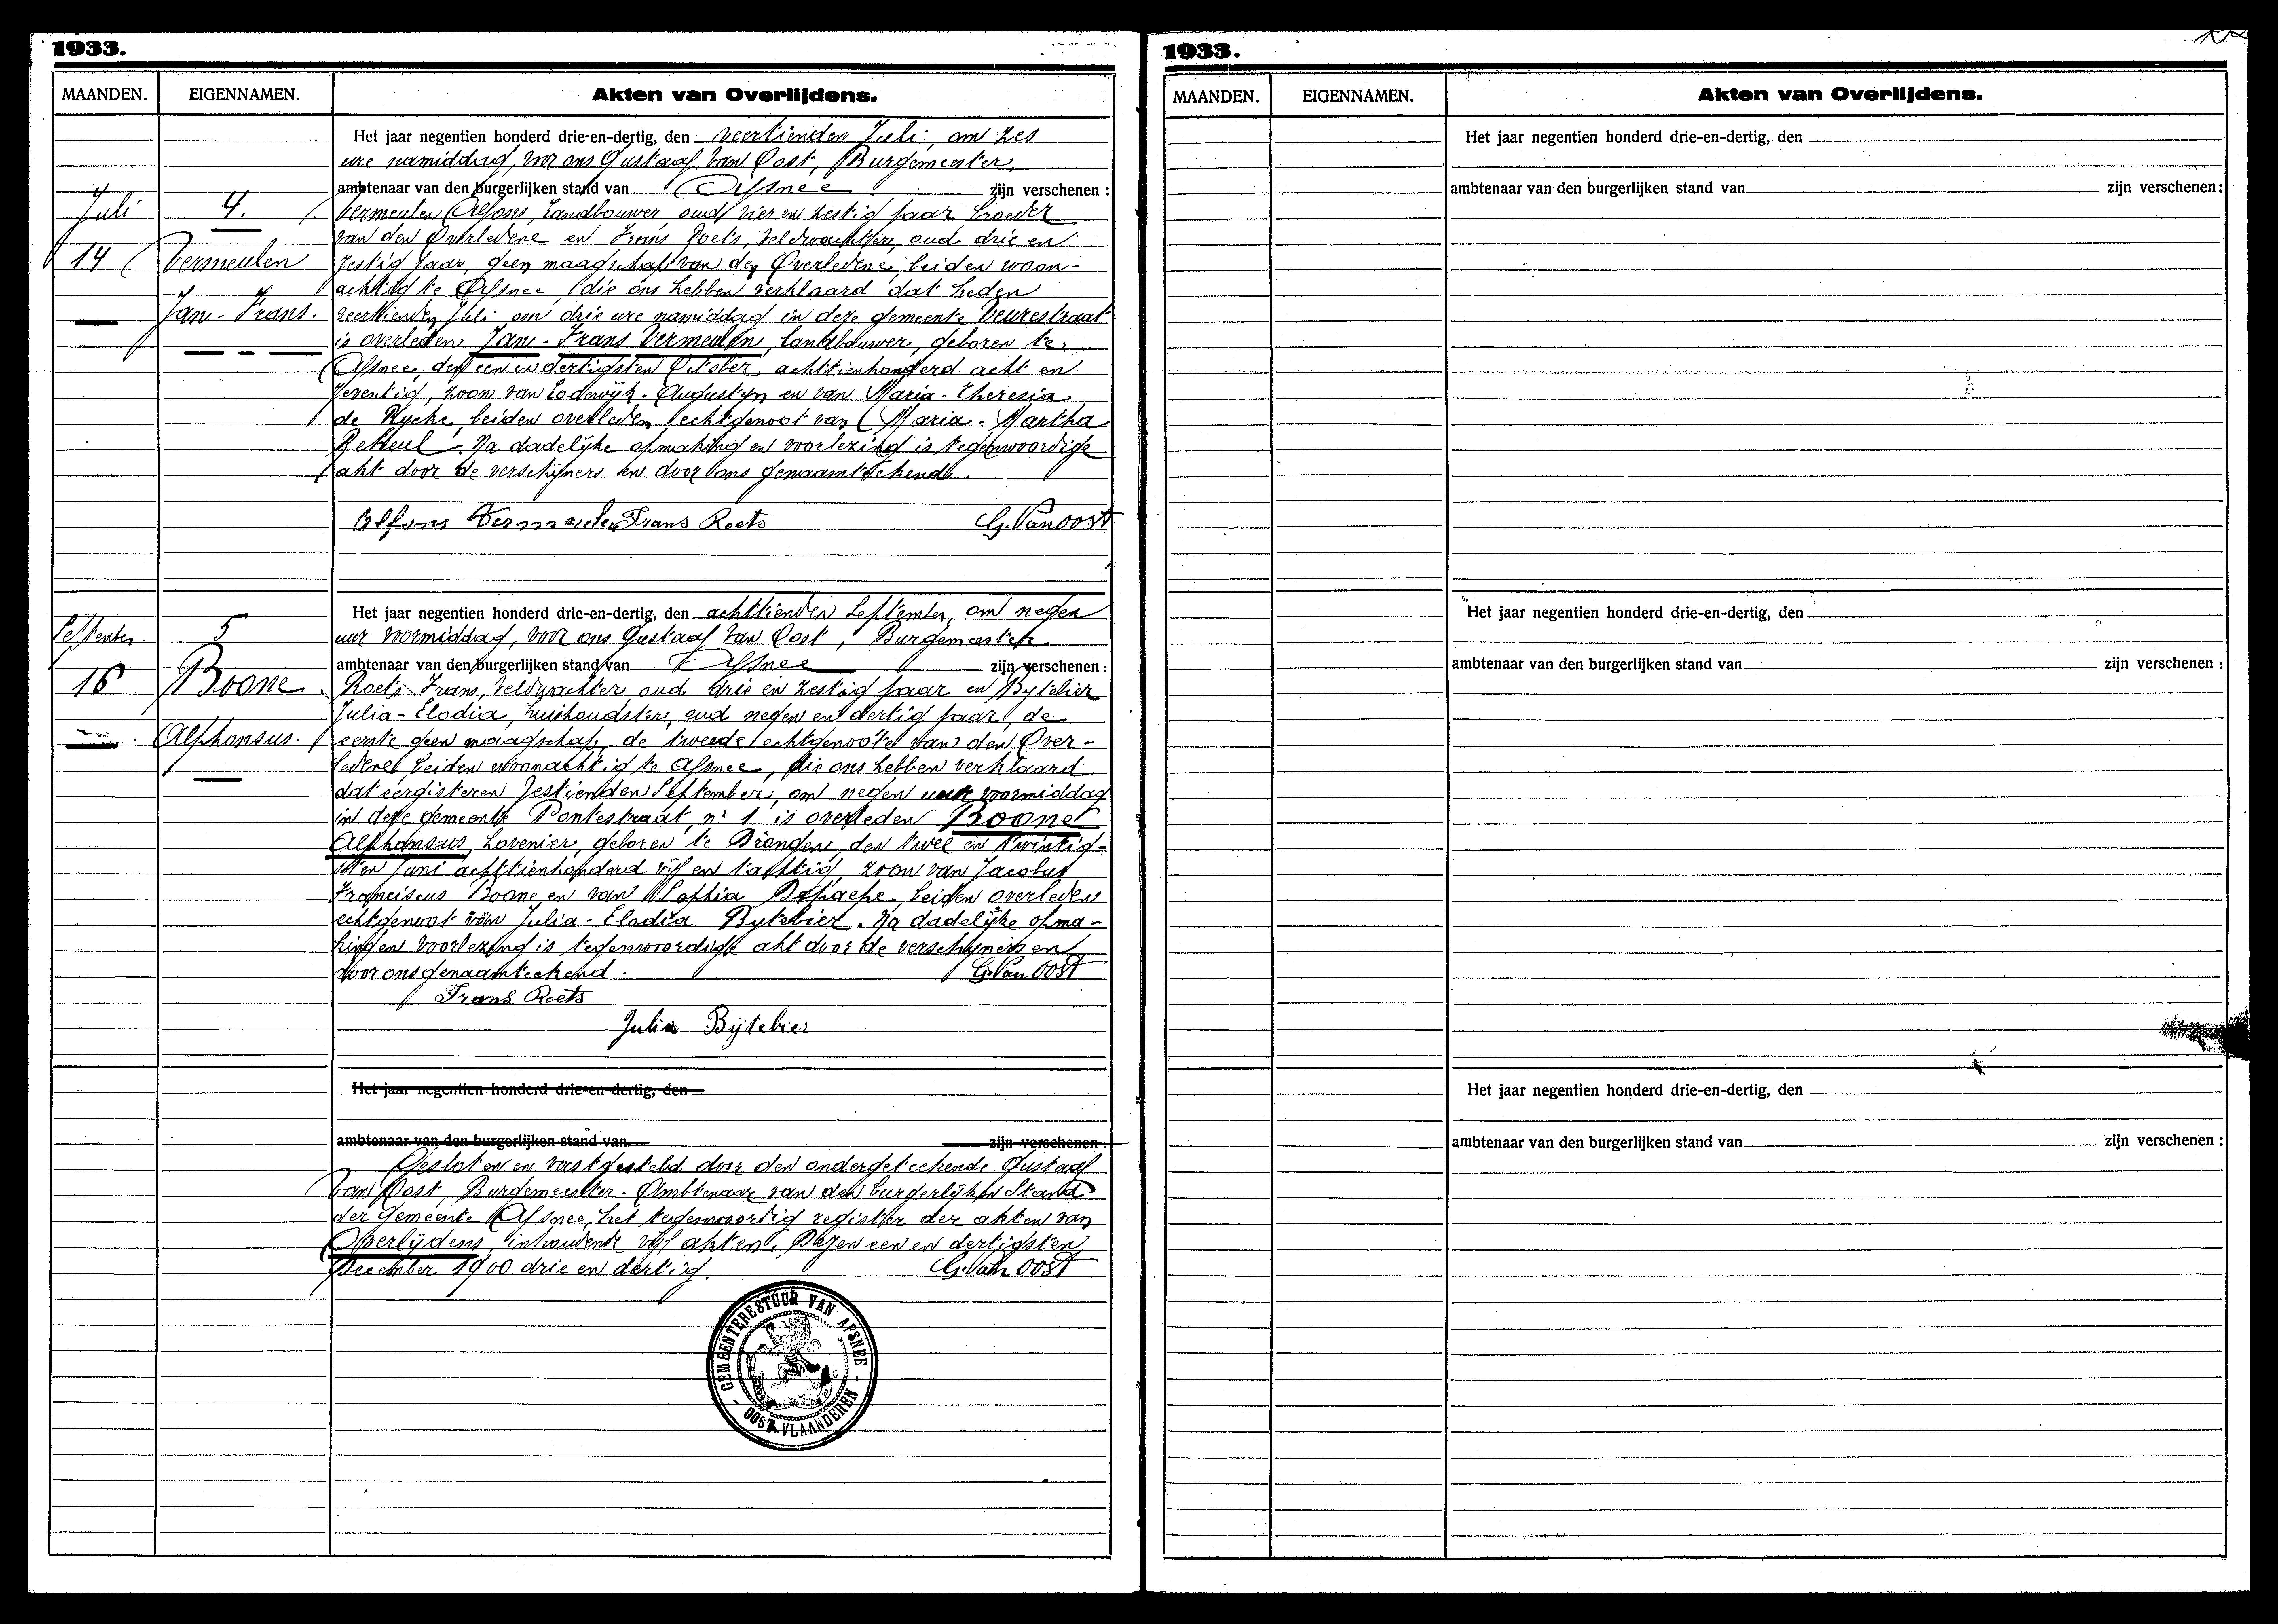 1933.
MAANDEN. EIGENNAMEN. Akten van Overlijdens.
Het jaar negentien honderd drie-en-dertig, den veertienden Juli, om zes
ure namiddag, voor ons Gustaaf Van Oost, Burgemeester,
ambtenaar van den burgerlijken stand van Afsnee zijn verschenen :
Juli 4. Vermeulen Alfons, Landbouwer oud vier en zestig jaar broeder
van den Overledene en Frans Roets, Veldwachter, oud drie en
14 Vermeulen zestig jaar, geen maagschap van den Overledene, beiden woon-
achtig te Afsnee, die ons hebben verklaard dat heden
Jan-Frans. veertienden Juli om drie ure namiddag in deze gemeente Veurestraat
is overleden Jan-Frans Vermeulen, landbouwer, geboren te
Afsnee, den een en dertigsten October achttienhonderd acht en
zeventig, zoon van Lodewijk-Augustyn en van Maria-Theresia
de Rycke, beiden overleden, echtgenoot van Maria-Martha
. Na dadelijke opmaking en voorlezing is tegenwoordige
akt door de verschijners en door ons genaamteekend.
Alfons Vermeulen Frans Roets G. Van Oost
Het jaar negentien honderd drie-en-dertig, den achttienden September, om negen
September. 5 uur voormiddag, voor ons Gustaaf Van Oost, Burgemeester
ambtenaar van den burgerlijken stand van Afsnee zijn verschenen :
16 Boone Roets Frans, Veldwachter oud drie en zestig jaar en Bytebier
Julia-Elodia, huishoudster, oud negen en dertig jaar, de
Alphonsus. eerste geen maagschap, de tweede echtgenoote van den Over-
ledene, beiden woonachtig te Afsnee, die ons hebben verklaard
dat eergisteren zestienden September, om negen uur voormiddag
in deze gemeente Pontestraat, nr 1 is overleden Boone
Alphonsus, hovenier, geboren te Drongen, den twee en twintig-
sten Juni achttienhonderd vijf en tachtig, zoon van Jacobus
Franciscus Boone en van Sophia Depaepe, beiden overleden
echtgenoot van Julia-Elodia Bytebier. Na dadelijke opma-
king en voorlezing is tegenwoordige akt door de verschijners en
door ons genaamteekend. G. Van Oost
Frans Roets
Julia Bijtebier
Het jaar negentien honderd drie-en-dertig, den
ambtenaar van den burgerlijken stand van zijn verschenen :
Gesloten en vastgesteld door den ondergeteekende Gustaaf
Van Oost, Burgemeester-Ambtenaar van den burgerlijken Stand
der Gemeente Afsnee, het tegenwoordig register der akten van
Overlijdens, inhoudende vijf akten. Dezen een en dertigsten
December 1900 drie en dertig. G. Van Oost
GEMEENTEBESTUUR VAN AFSNEE
- OOST-VLAANDEREN -
1933.
MAANDEN. EIGENNAMEN. Akten van Overlijdens.
Het jaar negentien honderd drie-en-dertig, den
ambtenaar van den burgerlijken stand van zijn verschenen :
Het jaar negentien honderd drie-en-dertig, den
ambtenaar van den burgerlijken stand van zijn verschenen :
Het jaar negentien honderd drie-en-dertig, den
ambtenaar van den burgerlijken stand van zijn verschenen :